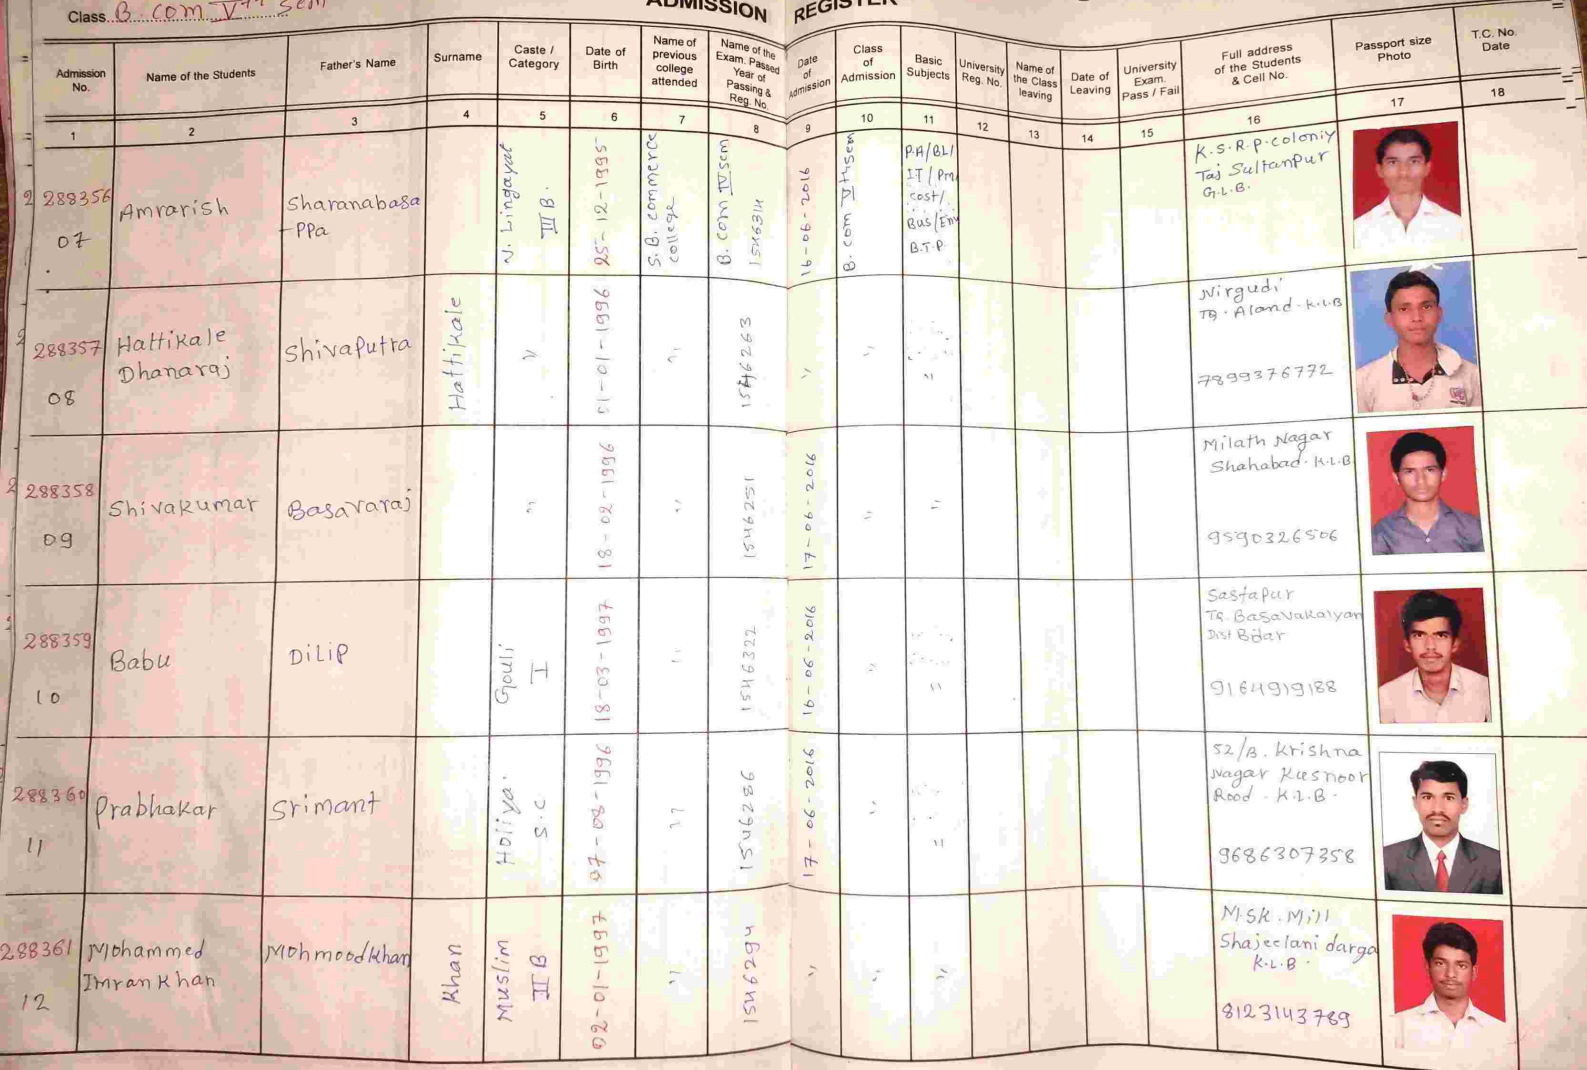 Class B. com Vth sem
ADMISSION REGISTER
Admission No.
Name of the Students
Father's Name
Surname
Caste / Category
Date of Birth
Name of previous college attended
Name of the Exam. Passed Year of Passing & Reg. No.
Date of Admission
Class of Admission
Basic Subjects
University Reg. No.
Name of the Class leaving
Date of Leaving
University Exam. Pass / Fail
Full address of the Students & Cell No.
Passport size Photo
T.C. No. Date
1 2 3 4 5 6 7 8 9 10 11 12 13 14 15 16 17 18
288356
07
Amrarish
Sharanabasa
-PPa
V. Lingayat
III B.
25-12-1995
S. B. commerce
college
B. com IV sem
1546314
16-06-2016
B. com Vth sem
P.A/BL/
IT/Pm
cost/
Bus/Env
B.T.P
K.S.R.P. coloniy
Taj Sultanpur
G.L.B.
288357
08
Hattikale
Dhanaraj
Shivaputra
Hattikale
"
01-01-1996
"
1546263
"
"
"
Nirgudi
TQ. Aland. K.L.B
7899376772
288358
09
Shivakumar
Basavaraj
"
18-02-1996
"
1546251
17-06-2016
"
"
Milath Nagar
Shahabad. K.L.B
9590326506
288359
10
Babu
DiLiP
Gouli
I
18-03-1997
"
1546322
16-06-2016
"
"
Sastapur
TQ. Basavakalyan
Dist Bidar
9164919188
288360
11
Prabhakar
Srimant
Holiya.
S.C.
07-08-1996
"
1546286
17-06-2016
"
"
52/B. Krishna
Nagar Kusnoor
Rood - K.L.B.
9686307358
288361
12
Mohammed
Imran Khan
Mohmood Khan
Khan
Muslim
II B
02-01-1997
"
1546294
"
"
"
M.SK. Mill
Shajeelani darga
K.L.B.
8123143789